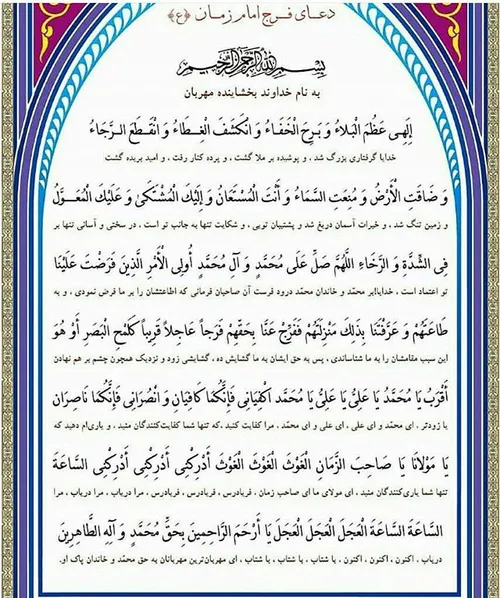 دعای فرج امام زمان (ع)
بسم الله الرحمن الرحیم
به نام خداوند بخشاینده مهربان
إِلَهِی عَظُمَ الْبَلاَءُ وَ بَرِحَ الْخَفَاءُ وَ انْکَشَفَ الْغِطَاءُ وَ انْقَطَعَ الرَّجَاءُ
خدایا گرفتاری بزرگ شد ، و پوشیده بر ملا گشت ، و پرده کنار رفت ، و امید بریده گشت
وَ ضَاقَتِ الْأَرْضُ وَ مُنِعَتِ السَّمَاءُ وَ أَنْتَ الْمُسْتَعَانُ وَ إِلَیْکَ الْمُشْتَکَیٰ وَ عَلَیْکَ الْمُعَوَّلُ
و زمین تنگ شد ، و خیرات آسمان دریغ شد و پشتیبان تویی ، و شکایت تنها به جانب تو است ، در سختی و آسانی تنها بر
فِی الشِّدَّةِ وَ الرَّخَاءِ اللَّهُمَّ صَلِّ عَلَی مُحَمَّدٍ وَ آلِ مُحَمَّدٍ أُولِی الْأَمْرِ الَّذِینَ فَرَضْتَ عَلَیْنَا
تو اعتماد است ، خدایا!بر محمّد و خاندان محمّد درود فرست آن صاحبان فرمانی که اطاعتشان را بر ما فرض نمودی ، و به
طَاعَتَهُمْ وَ عَرَّفْتَنَا بِذَلِکَ مَنْزِلَتَهُمْ فَفَرِّجْ عَنَّا بِحَقِّهِمْ فَرَجاً عَاجِلاً قَرِیباً کَلَمْحِ الْبَصَرِ أَوْ هُوَ
این سبب مقامشان را به ما شناساندی ، پس به حق ایشان به ما گشایش ده ، گشایشی زود و نزدیک همچون چشم بر هم نهادن
أَقْرَبُ یَا مُحَمَّدُ یَا عَلِیُّ یَا عَلِیُّ یَا مُحَمَّدُ اکْفِیَانِی فَإِنَّکُمَا کَافِیَانِ وَ انْصُرَانِی فَإِنَّکُمَا نَاصِرَانِ
یا زودتر ، ای محمّد و ای علی ، ای علی و ای محمّد ، مرا کفایت کنید ،که تنها شما کفایت‌کنندگان منید ، و یاری‌ام دهید که
یَا مَوْلاَنَا یَا صَاحِبَ الزَّمَانِ الْغَوْثَ الْغَوْثَ الْغَوْثَ أَدْرِکْنِی أَدْرِکْنِی أَدْرِکْنِی السَّاعَةَ
تنها شما یاری‌کنندگان منید ، ای مولای ما ای صاحب زمان ، فریادرس ، فریادرس ، فریادرس ، مرا دریاب ، مرا دریاب ، مرا
السَّاعَةَ السَّاعَةَ الْعَجَلَ الْعَجَلَ الْعَجَلَ یَا أَرْحَمَ الرَّاحِمِینَ بِحَقِّ مُحَمَّدٍ وَ آلِهِ الطَّاهِرِینَ
دریاب ، اکنون ، اکنون ، اکنون ، با شتاب ، با شتاب ، با شتاب ، ای مهربان‌ترین مهربانان به حق محمّد و خاندان پاک او.